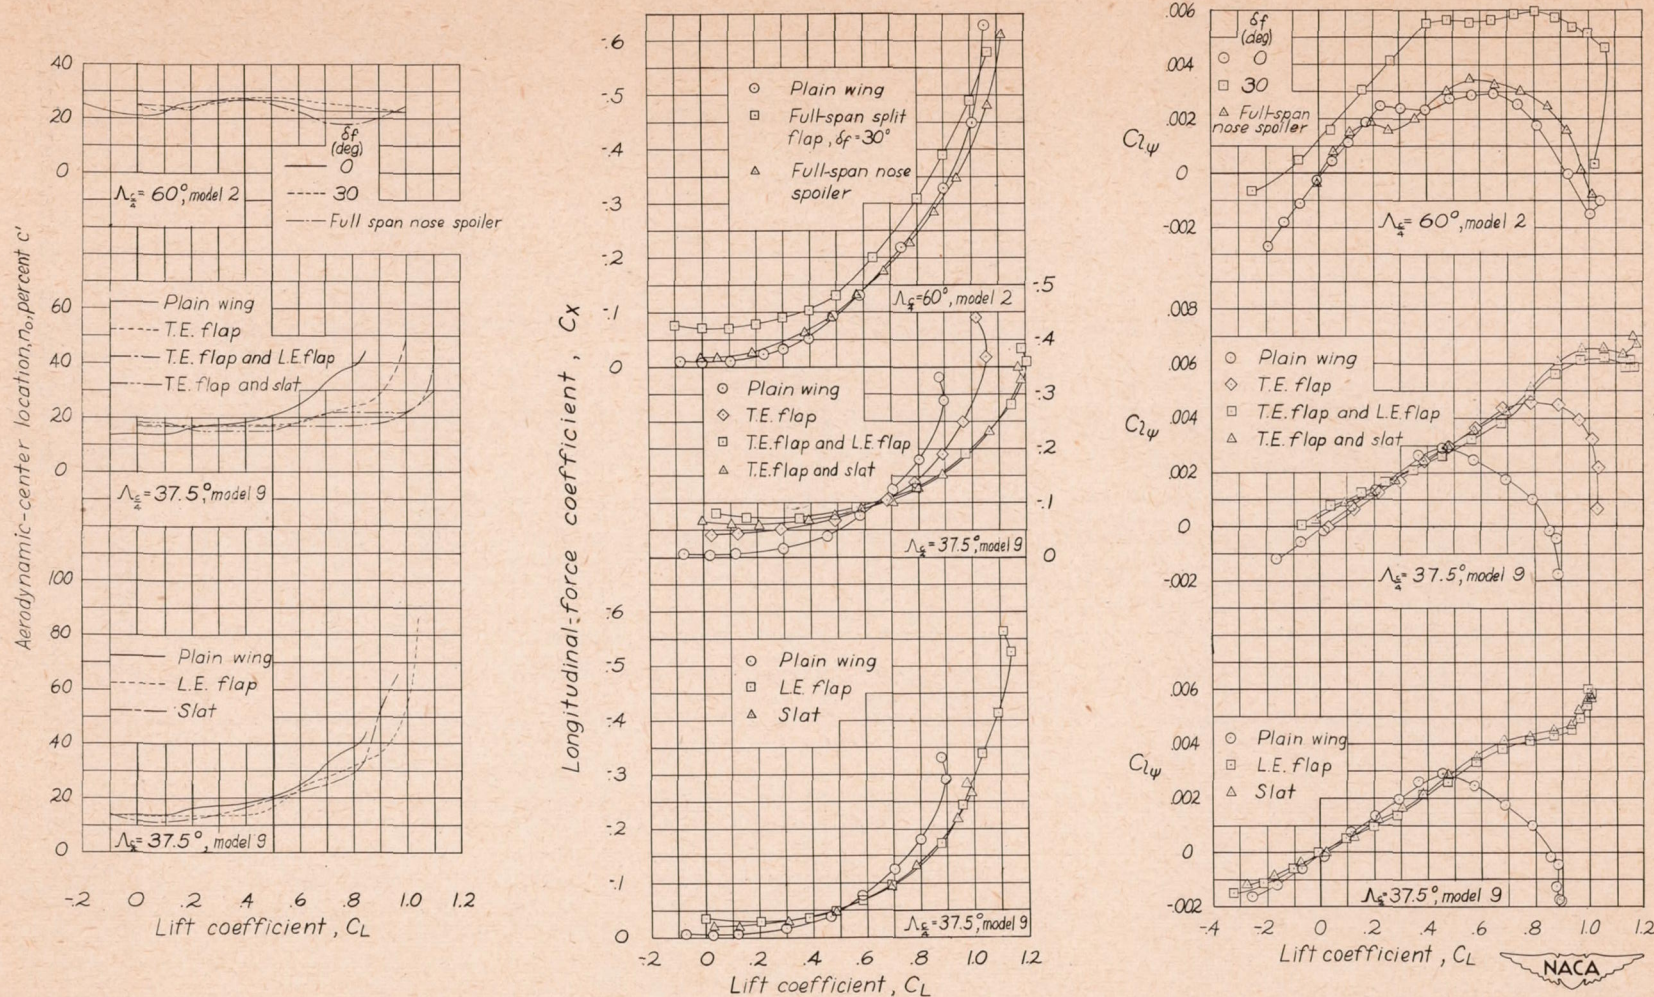 Aerodynamic-center location, n₀, percent c'
40
20
0
δf
(deg)
0
30
Full span nose spoiler
Λc/4 = 60°, model 2
60
40
20
0
Plain wing
T.E. flap
T.E. flap and L.E. flap
T.E. flap and slat
Λc/4 = 37.5°, model 9
100
80
60
40
20
0
Plain wing
L.E. flap
Slat
Λc/4 = 37.5°, model 9
-.2 0 .2 .4 .6 .8 1.0 1.2
Lift coefficient, CL
Longitudinal-force coefficient, Cx
-.6
-.5
-.4
-.3
-.2
-.1
0
Plain wing
Full-span split
flap, δf = 30°
Full-span nose
spoiler
Λc/4 = 60°, model 2
-.5
-.4
-.3
-.2
-.1
0
Plain wing
T.E. flap
T.E. flap and L.E. flap
T.E. flap and slat
Λc/4 = 37.5°, model 9
-.6
-.5
-.4
-.3
-.2
-.1
0
Plain wing
L.E. flap
Slat
Λc/4 = 37.5°, model 9
-.2 0 .2 .4 .6 .8 1.0 1.2
Lift coefficient, CL
Clψ
.006
.004
.002
0
-.002
δf
(deg)
0
30
Full-span
nose spoiler
Λc/4 = 60°, model 2
Clψ
.008
.006
.004
.002
0
-.002
Plain wing
T.E. flap
T.E. flap and L.E. flap
T.E. flap and slat
Λc/4 = 37.5°, model 9
Clψ
.006
.004
.002
0
-.002
Plain wing
L.E. flap
Slat
Λc/4 = 37.5°, model 9
-.4 -.2 0 .2 .4 .6 .8 1.0 1.2
Lift coefficient, CL
NACA